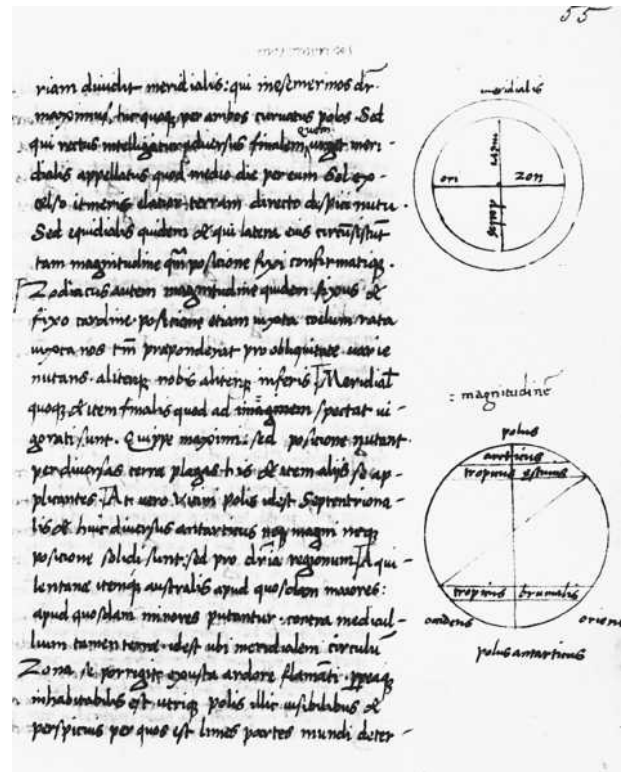 55
riam diuidit meridialis: qui mesemerinos dr
maximus, hic quoque per ambos curuatus polos. Sed
qui rectus intelligatur aduersus finalem, urget meri-
quem
dialis appellatus quod medio die per eum Sol exo-
Sed equidialis quidem & qui latera eius circũsistũt
tam magnitudine qm posicione fixi confirmatiq.
Zodiacus autem magnitudine quidem fixus &
fixo cardine posicione etiam iuxta coelum rata
iuxta nos tm praponderat pro obliquitate uarie
nutans. aliterq nobis aliterq inferis. Meridial
quoq & item finalis quod ad spectat ui-
gorati sunt. Quippe maximi: sed posicione nutant
per diuersas terra plagas his & item alijs se ap-
plicantes. At uero uicini polis idest Septentriona-
lis & huic diuersus antarticus neq magni neq
posicione solidi sunt: sed pro dria regionum Aqui-
lentana itemq australis apud quosdam maiores:
apud quosdam minores putantur. contra mediul-
lium tamen terrae idest ubi meridialem circulũ
Zona se porrigit exusta ardore flamati
inhabitabilis est. utrisq polis illic uisibilibus &
perspicuis per quos est limes partes mundi deter-
meridialis
ori zon
: magnitudinẽ
polus
arcticus
tropicus estiuus
tropicus brumalis
occidens
oriens
polus antarticus